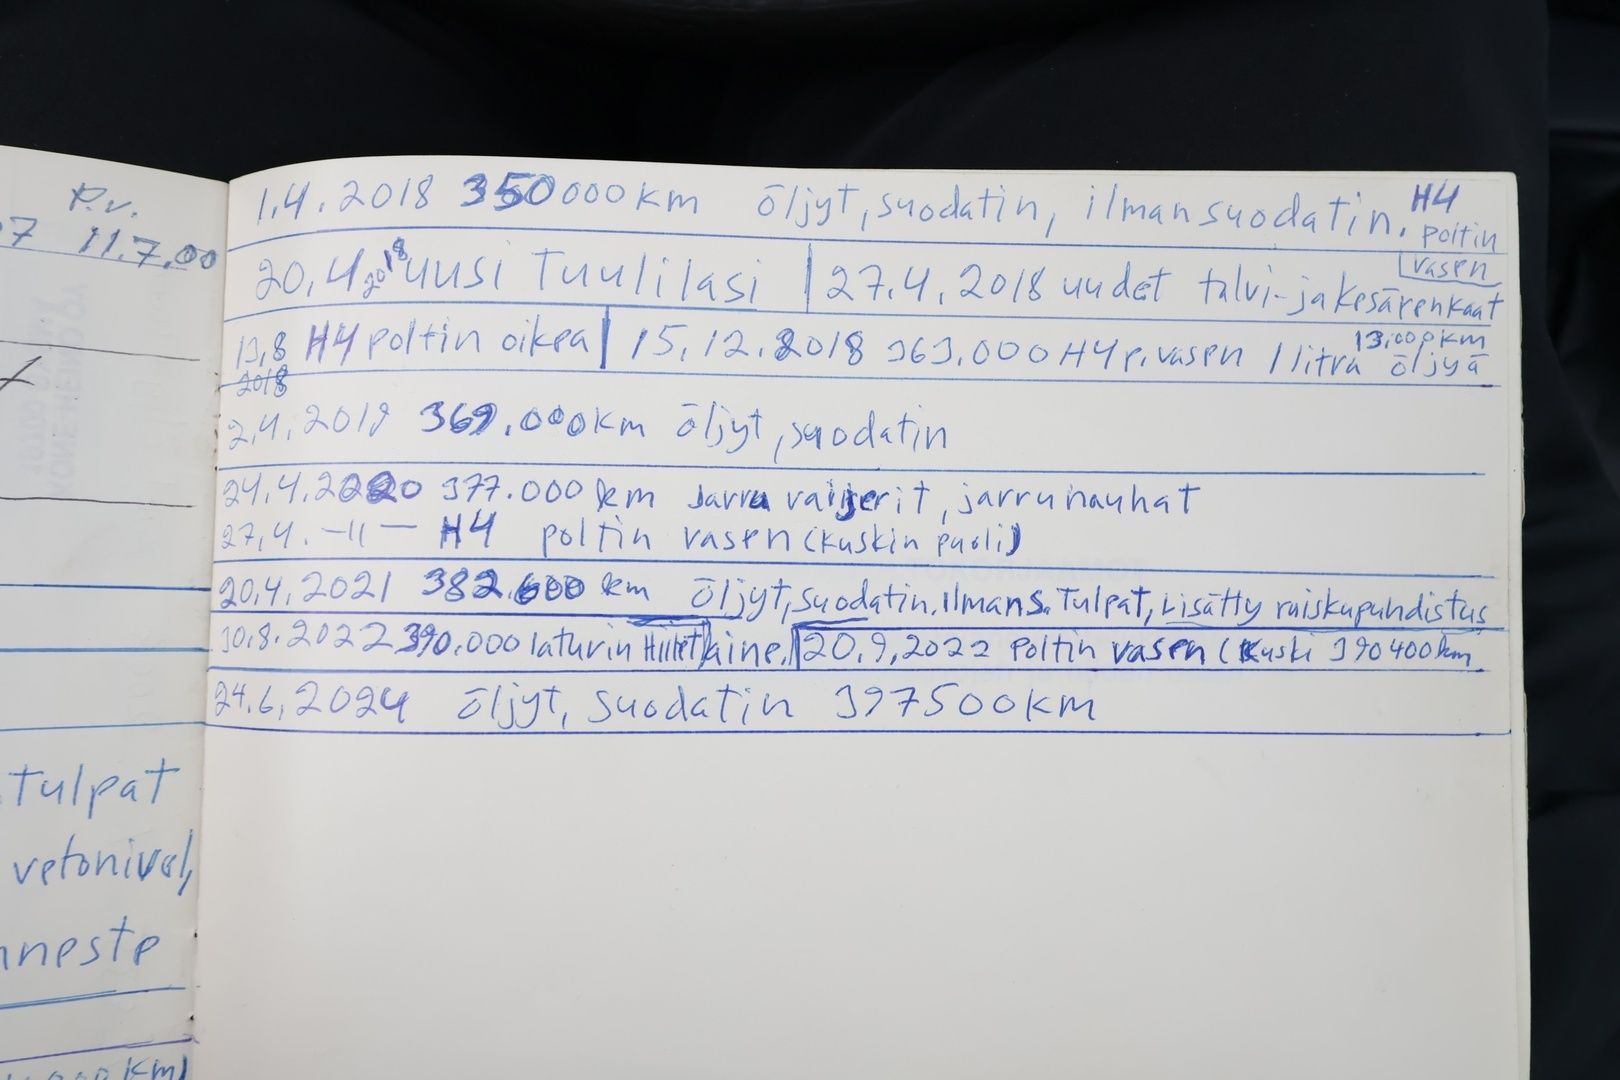 P.v.
7 11.7.00
tulpat
vetonivel,
neste
000 km)
1.4.2018 350000km öljyt, suodatin, ilmansuodatin. H4
poltin
vasen
20.4.2018 uusi Tuulilasi | 27.4.2018 uudet talvi-ja kesärenkaat
13.8 H4 poltin oikea | 15.12.2018 363.000 H4 p. vasen 1 litra öljyä
2018
13.000km
2.4.2019 369.000km öljyt, suodatin
24.4.2020 377.000 km Jarru vaijerit, jarrunauhat
27.4. -11- H4 poltin vasen (kuskin puoli)
20.4.2021 382.600 km öljyt, suodatin. Ilmans. Tulpat, Lisätty ruiskupuhdistus
30.8.2022 390.000 laturin Hiilet aine. | 20.9.2022 Poltin vasen (Kuski 390400km
24.6.2024 öljyt, suodatin 397500km